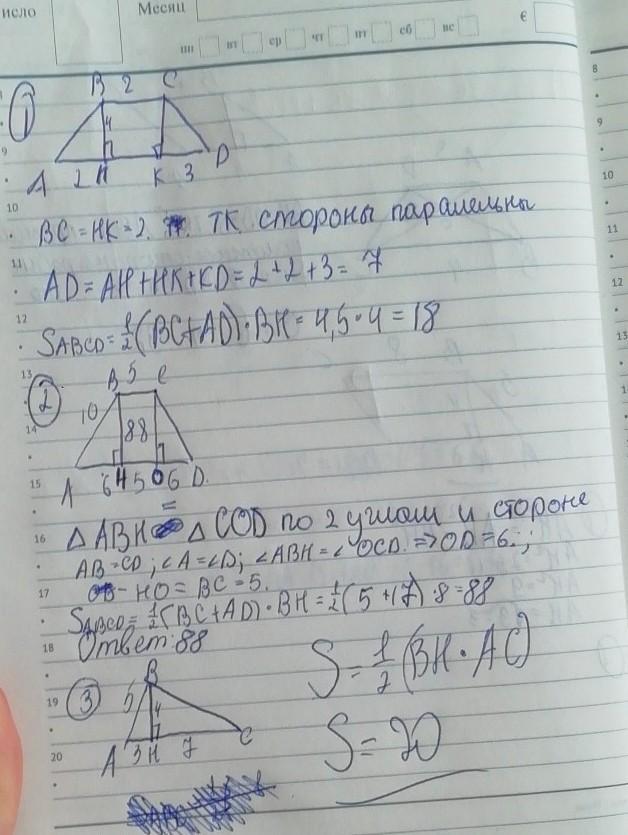 исло
Месяц
пн вт ср чт пт сб вс €
8
9
10
11
12
13
①
B 2 C
4
A 2 H K 3 D
9
10
BC = HK = 2. тк стороны паралельны
11
AD = AH + HK + KD = 2 + 2 + 3 = 7
12
SABCD = 1/2 (BC + AD) · BH = 4,5 · 4 = 18
13
②
B 5 C
10
8 8
14
15
A 6 H 5 O 6 D.
16
△ ABH = △ COD по 2 углам и стороне
AB = CD ; ∠A = ∠D; ∠ABH = ∠OCD. => OD = 6. ;
17
HO = BC = 5.
SABCD = 1/2 (BC + AD) · BH = 1/2 (5 + 17) · 8 = 88
18
Ответ: 88
S = 1/2 (BH · AC)
19
③
B
5 4
A 3 H 7 C
20
S = 20